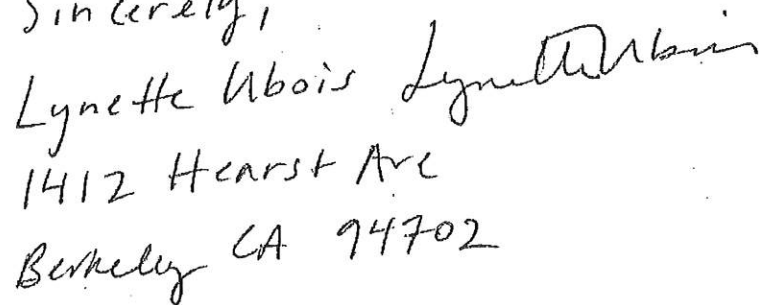 Sincerely,
Lynette Ubois Lynette Ubois
1412 Hearst Ave
Berkeley CA 94702